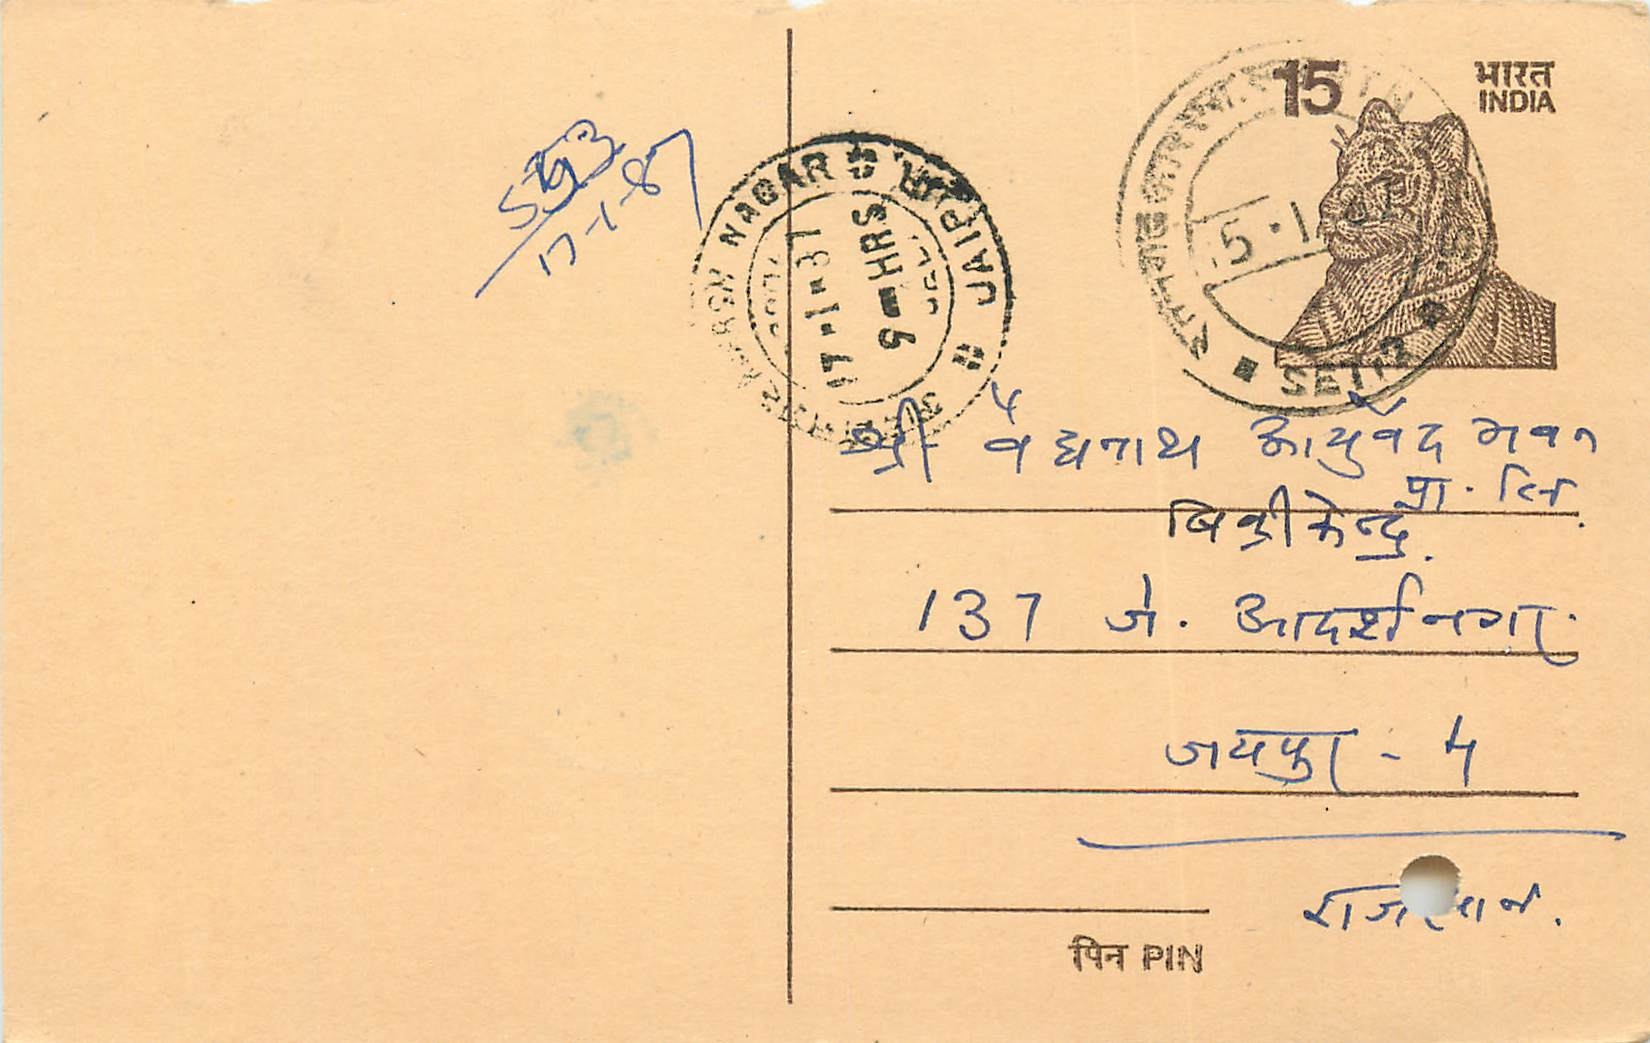 15
भारत
INDIA
NAGAR
JAIPUR
17-1-87
9-HRS
17-1-87
5.1
SET-2
श्री वैद्यनाथ आयुर्वेद भवन
प्रा. लि.
बिक्री केन्द्र.
137 जे. आदर्शनगर.
जयपुर - 4
पिन PIN